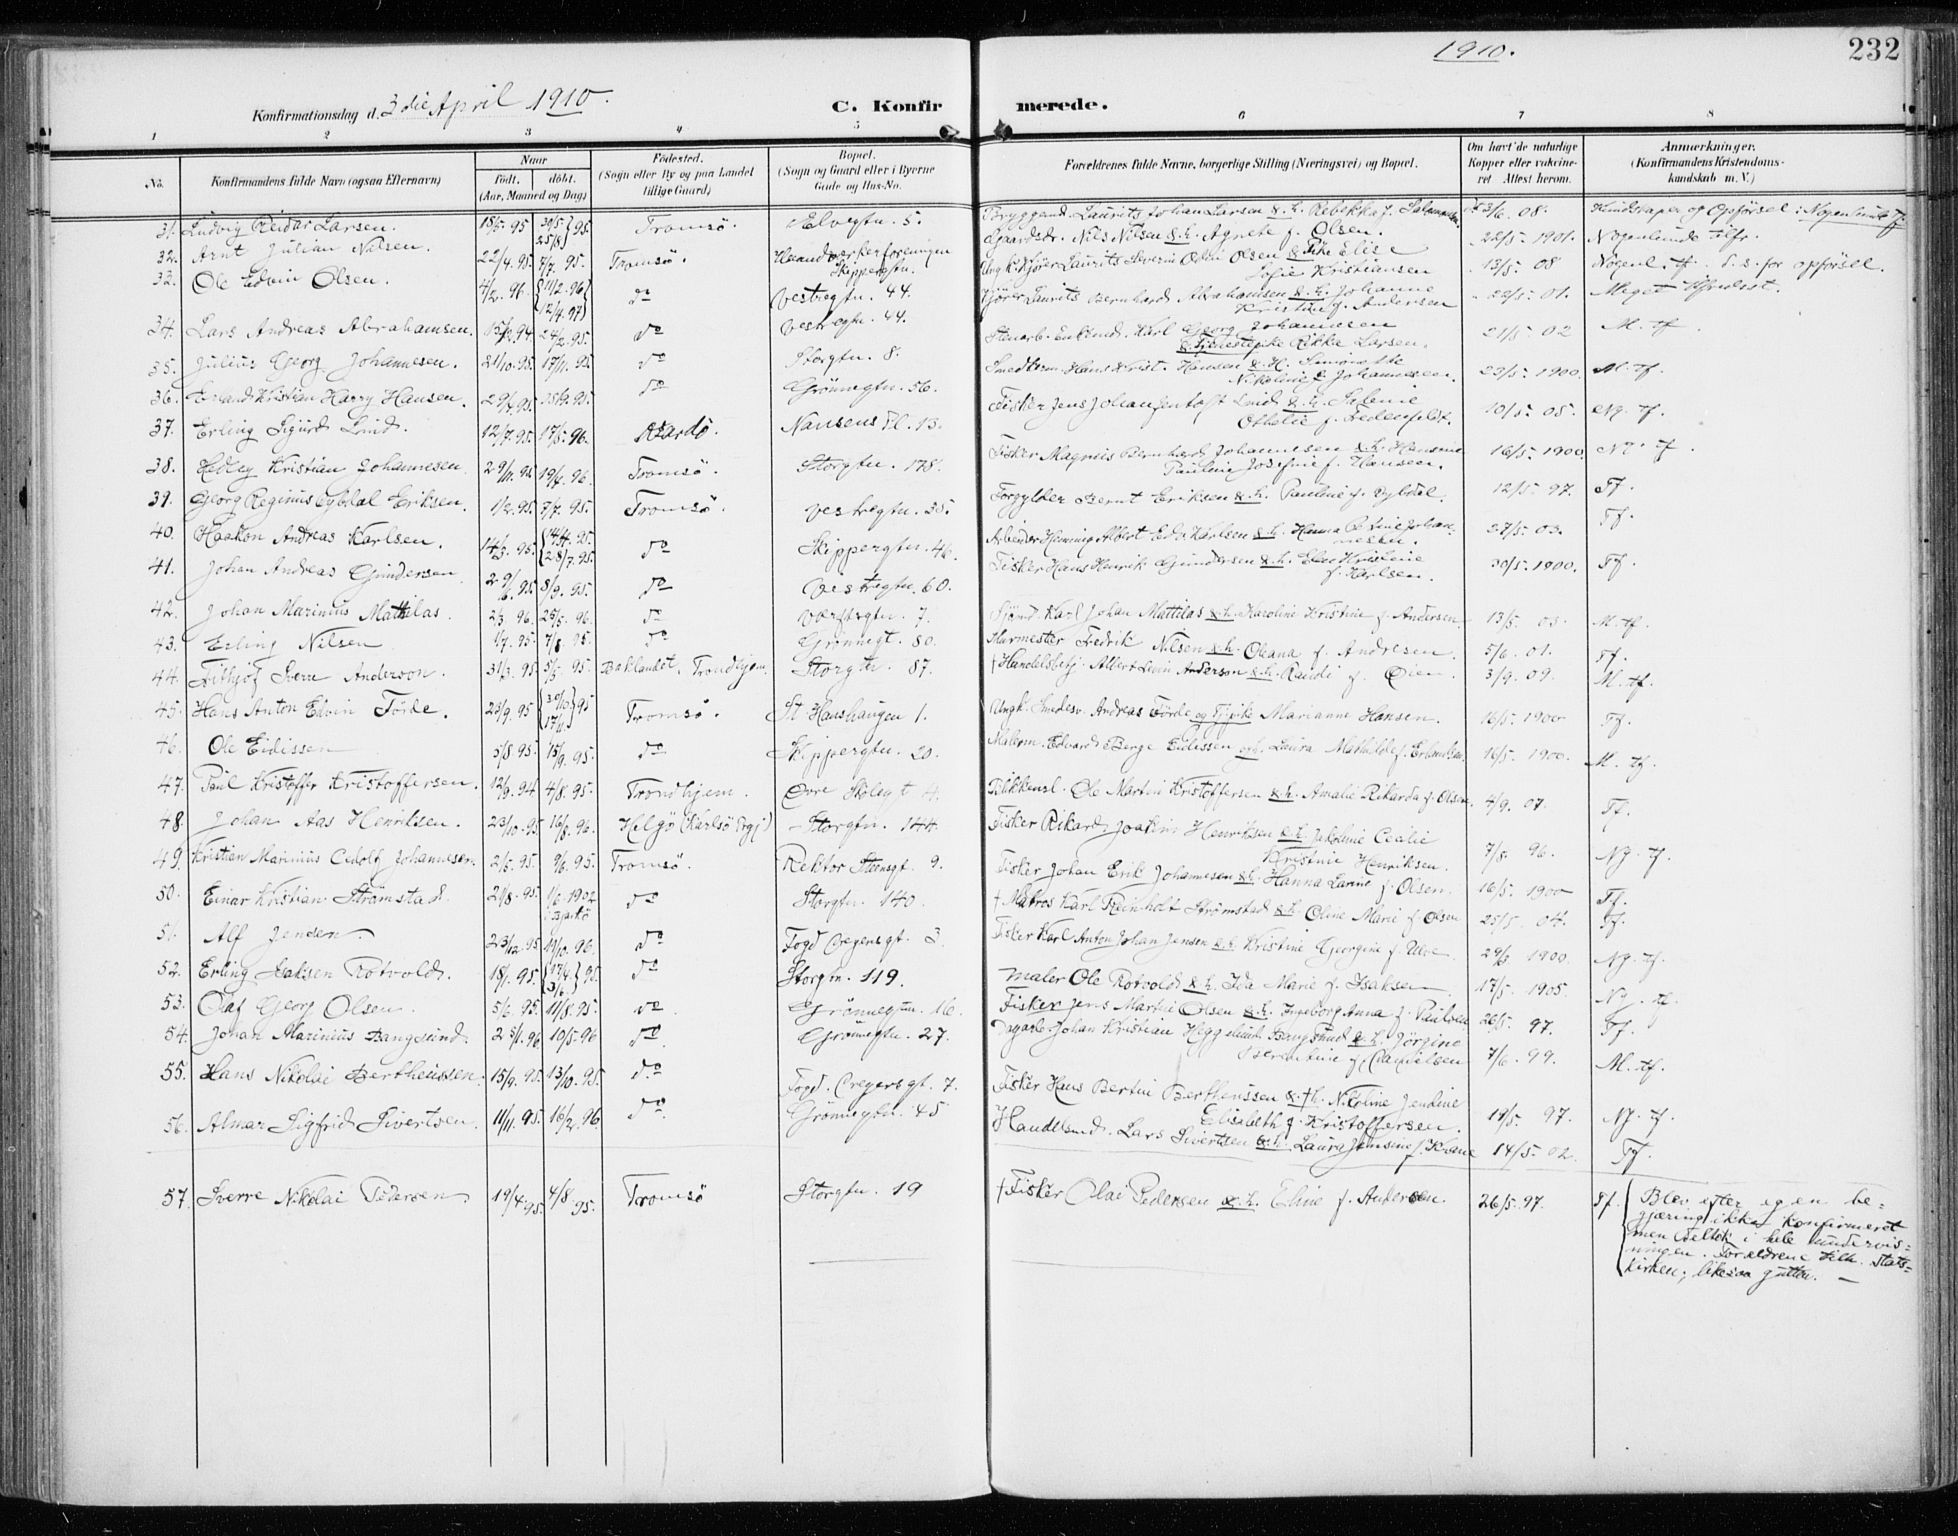 1910.
232
Konfirmationsdag d. 3die April 1910.
C. Konfirmerede.
1 2 3 4 5 6 7 8
No.
Konfirmandens fulde Navn (ogsaa Efternavn)
Naar
født, døbt.
(Aar, Maaned og Dag)
Fødested.
(Sogn eller By og paa Landet
tillige Gaard)
Bopæl.
(Sogn og Gaard eller i Byerne
Gade og Hus-No.
Forældrenes fulde Navne, borgerlige Stilling (Næringsvei) og Bopæl.
Om havt de naturlige
Kopper eller vakcine-
ret Attest herom.
Anmærkninger.
(Konfirmandens Kristendoms-
kundskab m. V.)
31. Ludvig Reidar Larsen. 95 Tromsö. Elvegtn. 5. Bryggem. Laurits Johan Larsen & h. Rebekka f. 3/6. 08. Kundskaper og Opførsel: Nogenlunde Tf.
32. Arnt Julian Nilsen. 22/4.95 7/7. 95. Tromsö. Haandverkerforeningen Skippergtn. Gaardsdr. Nils Nilsen & h. Agnete f. Olsen. 22/5. 1901. Nogenlunde tilfr.
33. Ole Edvin Olsen. 4/2. 96. {11/2.96 12/4.97} do Vestregtn. 44. Ung k. Kjører Laurits Severin Olsen & Pike Elise Sofie Kristiansen 13/5 08 Nogenl. tf. T. s. for opførsel.
34. Lars Andreas Abrahamsen. 24/2.95. do Vestregtn. 44. Kjører Laurits Bernhard Abrahamsen & h. Johanne Kristine f. Andersen 01. Meget tilfredsst.
35. Julius Georg Johannesen. 21/10.95. 17/11. 95 do Storgtn. 8. Stenarb. Enkemd. Karl Georg Johannesen & Tjenestepike Rikke Larsen. 21/5 02 M. tf.
36. Erland Kristian Harry Hansen. 95. do Grönnegtn. 56. Smedkorm. Hans Krist. Hansen & H. Nikoline f. Johannesen. 23/5. 1900. M. tf.
37. Erling Sigurd Lind. 12/7.95. 17/5. 96. Vardö. Nansens Pl. 13. Fisker Jens Johan Lind & h. Othelie f. 10/5. 05. Ng. tf.
38. Hedley Kristian Johannesen. 29/11. 95 19/4. 96. Tromsö. Storgtn. 178. Fisker Magnus Bernhard Johannesen & h. Hansine Pauline Josefine f. Hansen. 16/5. 1900 Ng. tf.
39. Georg Reginus Eriksen. 1/2. 95. 7/7. 95. Tromsö. Vestregtn. 35. Forgylder Bernt Eriksen & h. Pauline f. 12/5. 97. Tf.
40. Haakon Andreas Karlsen. 14/3. 95. {14/4. 95. 28/7. 95. do Skippergtn. 46. Arbeider Henning Albert Edv. Karlsen & h. Hanna Petrine Johannesen. 27/5. 03. Tf.
41. Johan Andreas Gundersen. 95 8/9. 95. do Vestregtn. 60. Fisker Hans Henrik Gundersen & h. Elen Kristine f. Karlsen. 30/5. 1900. Tf.
42. Johan Marinius Mattilas. 2/3. 96. 25/5. 96. do 7. Sjömd. Karl Johan Mattilas & h. Karoline Kristine f. Andersen 13/5. M. tf.
43. Erling Nilsen 1/7. 95. 7/8. 95. do Grönnegt. 80. Murmester Fredrik Nilsen & h. Oleana f. Andresen. 5/6. 01. Tf.
44. Fithjof Sverre Anderson. 31/3. 95 5/5. 95. Baklandet, Trondhjem. Storgtn. 87. † Handelsbetj. Albert Levin Anderson & h. Randi f. Øien. 3/9. 09. M. tf.
45. Hans Anton Edvin Förde. 23/9. 95 95 Tromsö. St. Hanshaugen 1. Ungk. Smedesv. Andreas Förde og Tj.pike Marianne Hansen. 16/5 1900 Tf.
46. Ole Eidissen 5/8. 95. 15/9. 95. do Skippergtn. 20. Malerm. Edvard Berge Eidissen og h. Laura Mathilde f. Erlandsen. 16/5. 1900. M. tf.
47. Paul Kristoffer Kristoffersen. 12/9. 94. 4/8. 95. Trondhjem. Øvre Skolegt 4. Blikkensl. Ole Martin Kristoffersen & h. Amalie Rikarda f. Olsen. 4/9. 07. Tf.
48. Johan Aas Henriksen. 23/10. 95. 16/8. 96. Helgö (Karlsö Prgj) Storgtn. 144. Fisker Rikard Joakim Henriksen & h. Jakobine Cecilie Kristine Henriksen. 7/8. 96. Ng. tf.
49. Kristian Marinius Johannesen. 2/5. 95. 9/6. 95. Tromsö. Rektor Steensgt. 9. Fisker Johan Erik Johannesen & h. Hanna Larine f. Olsen. 16/5. 1900 Tf.
50. Einar Kristian Strömstad. 21/8. 95. 1/6. 1902 do Storgtn. 140. † Matros Karl Reinholt Strömstad & h. Oline Marie f. Olsen 25/5. 04. Tf.
51. Alf Jensen 23/12. 95 96. do Fogd Dreyersgt. 3. Fisker Karl Anton Johan Jensen & h. Kristine Georgine f. 29/5. 1900. Ng. tf.
52. Erling Isaksen Rotvold. 18/1. 95. {17/4. 3/6.} 95. do Storgtn. 119. Maler Ole Rotvold & h. Ida Marie f. Isaksen 17/5. 1905. Ng. tf.
53. Olaf Georg Olsen. 5/6. 95. 11/8. 95. do Grönnegtn. 16. Fisker Jens Martin Olsen & h. Ingeborg Anna f. Paulsen 26/5. 97. Tf.
54. Johan Marinius Bangsund. 96 10/5.96 do Grönnegtn. 27. Johan Kristian Heggelund Bangsund & h. Jörgine Berentine f. Danielsen 7/6. 99. M. tf.
55. Hans Nikolai Bertheussen. 15/9. 95. 13/10. 95. do Fogd. Dreyersgt. 7. Fisker Hans Bertin Bertheussen & † h. Nikoline Jendine Elisabeth f. Kristoffersen. 97. Ng. tf.
56. Almar Sigfrid Sivertsen. 11/11. 95. 16/2. 96 do Grönnegtn. 45 Handelsmd. Lars Sivertsen & h. Laura Jensine f. Krane 14/5. 02. Tf.
57. Sverre Nikolai Pedersen 19/4.95. 4/8 95. Tromsö Storgtn. 19 † Fisker Olai Pedersen & h. Eline f. Andersen. 26/5. 97. Tf.
Blev efter egen be-
gjæring ikke konfirmeret
men deltok i hele undervis-
ningen. Forældrene tilh. Stats-
kirken; likesaa gutten. —